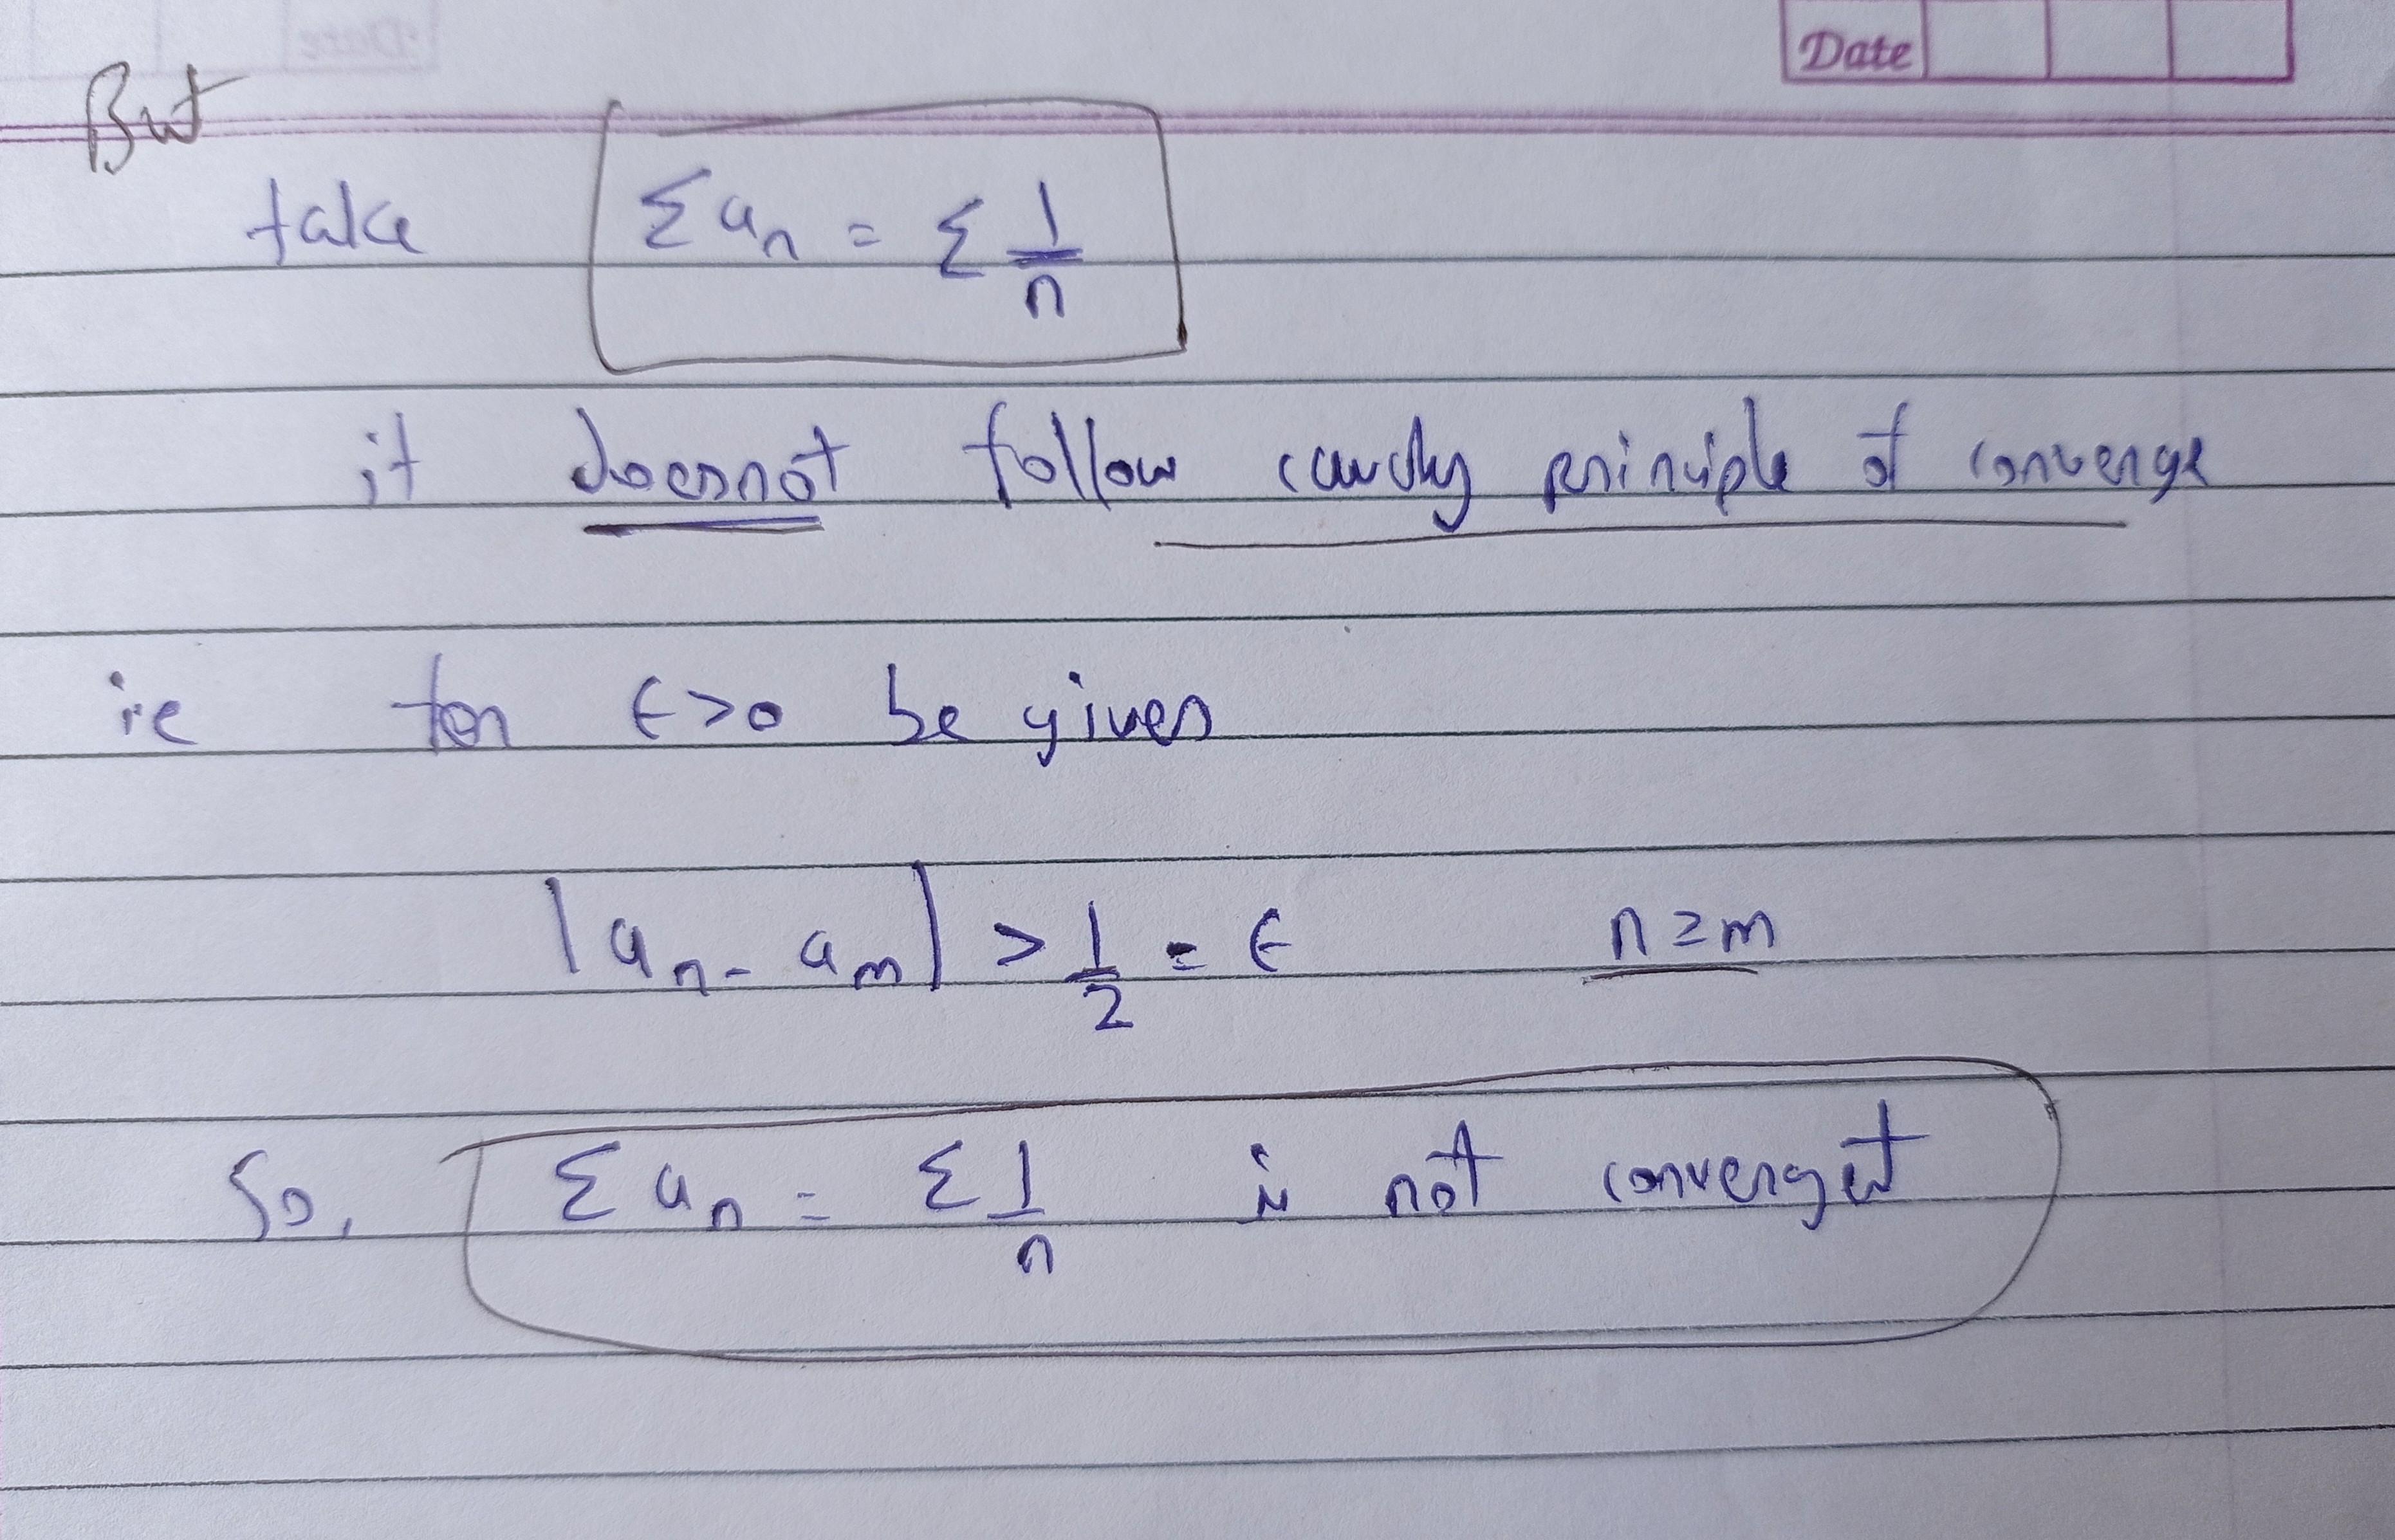 Date
But
take Σ aₙ = Σ 1/n
it doesnot follow cauchy principle of converge
ie for ϵ>0 be given
|aₙ - aₘ| > 1/2 = ϵ n≥m
So, Σ aₙ = Σ 1/n is not converget